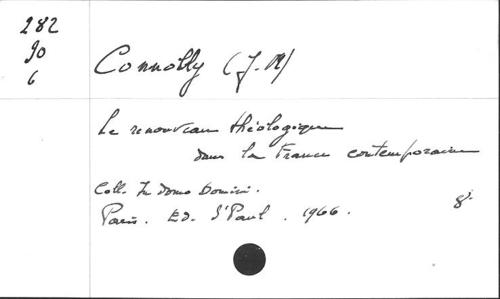 282
90
6
Connolly (J.M)
Le renouveau théologique
dans la France contemporaine
Coll. In domo Domini.
Paris. Ed. St Paul. 1966. 8°